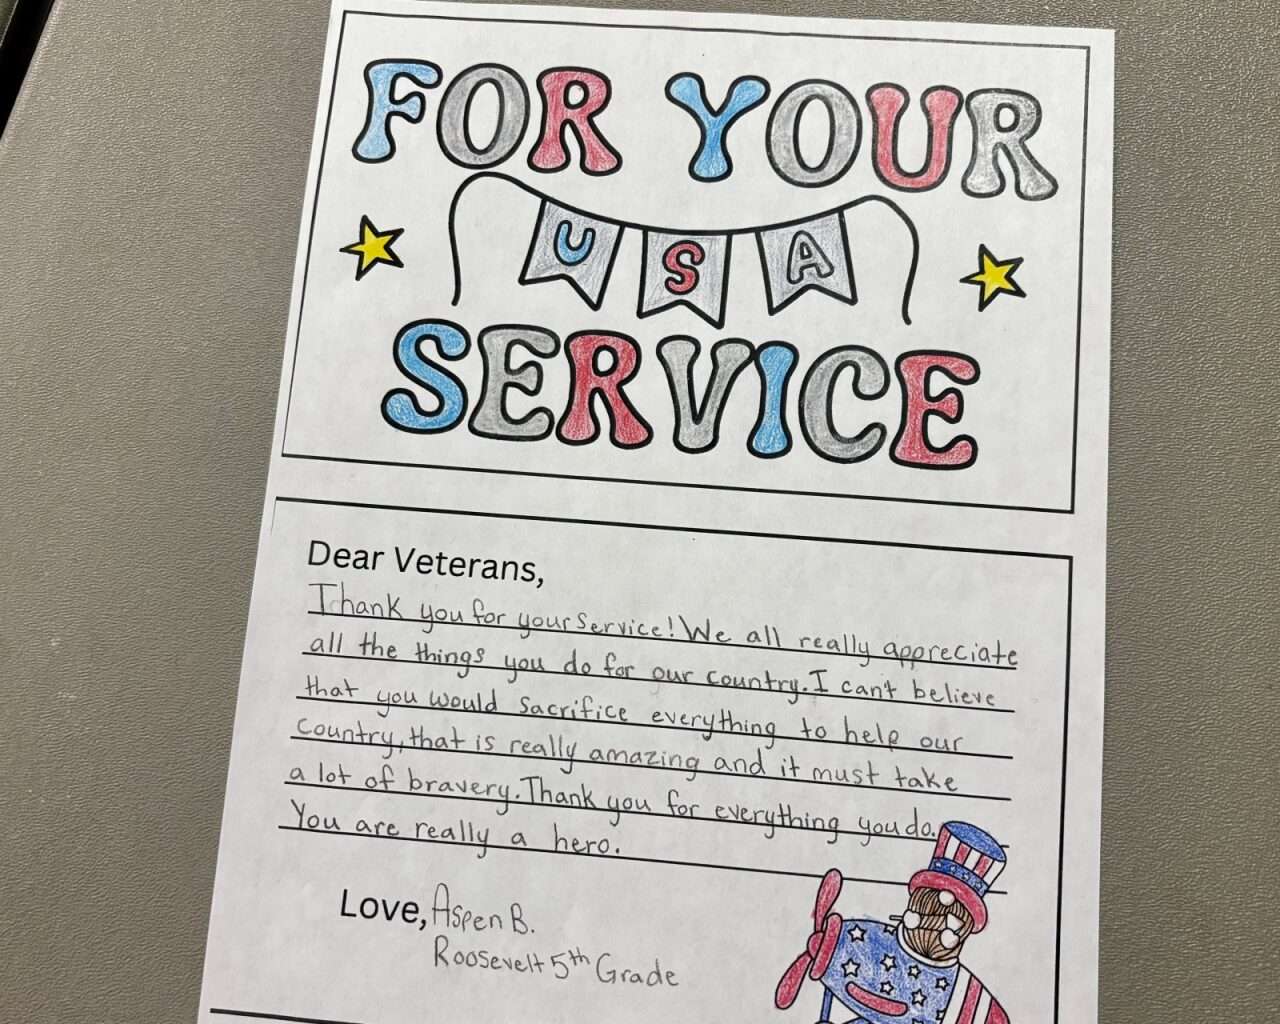 FOR YOUR
USA
SERVICE
Dear Veterans,
Thank you for your service! We all really appreciate
all the things you do for our country. I can't believe
that you would sacrifice everything to help our
country, that is really amazing and it must take
a lot of bravery. Thank you for everything you do.
You are really a hero.
Love, Aspen B.
Roosevelt 5th Grade